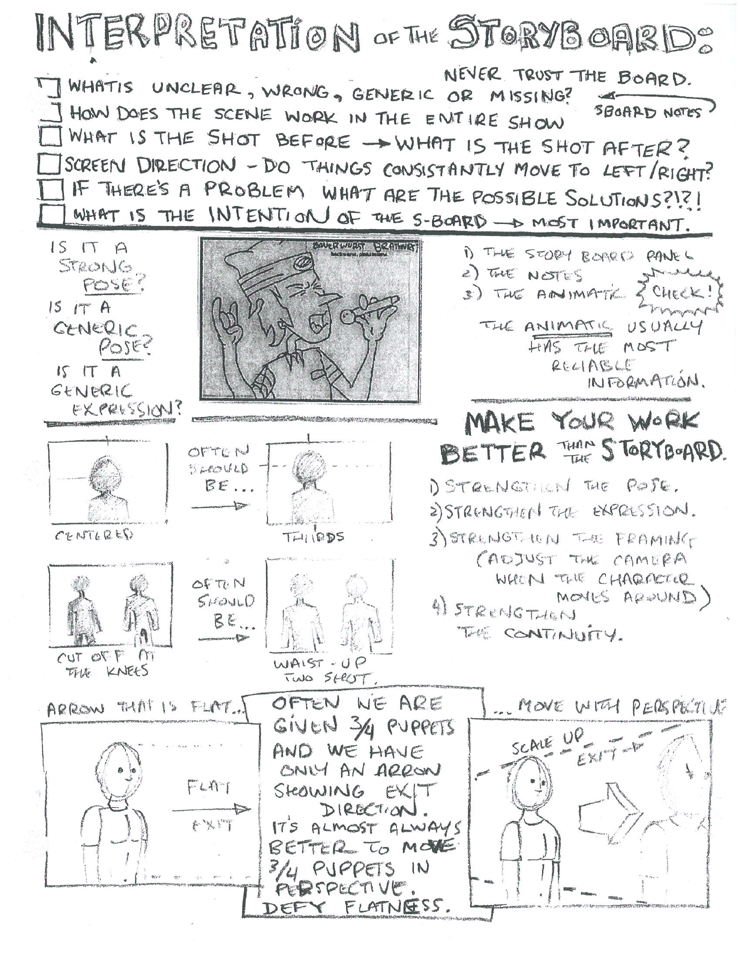 INTERPRETATION OF THE STORYBOARD:
NEVER TRUST THE BOARD.
WHAT IS UNCLEAR, WRONG, GENERIC OR MISSING?
SBOARD NOTES
HOW DOES THE SCENE WORK IN THE ENTIRE SHOW
WHAT IS THE SHOT BEFORE → WHAT IS THE SHOT AFTER?
SCREEN DIRECTION - DO THINGS CONSISTANTLY MOVE TO LEFT/RIGHT?
IF THERE'S A PROBLEM WHAT ARE THE POSSIBLE SOLUTIONS?!?!
WHAT IS THE INTENTION OF THE S-BOARD → MOST IMPORTANT.
IS IT A
STRONG
POSE?
IS IT A
GENERIC
POSE?
IS IT A
GENERIC
EXPRESSION?
1) THE STORY BOARD PANEL
2) THE NOTES
3) THE ANIMATIC
CHECK!
THE ANIMATIC USUALLY
HAS THE MOST
RELIABLE
INFORMATION.
MAKE YOUR WORK
BETTER THAN THE STORYBOARD.
1) STRENGTHEN THE POSE.
2) STRENGTHEN THE EXPRESSION.
3) STRENGTHEN THE FRAMING
(ADJUST THE CAMERA
WHEN THE CHARACTER
MOVES AROUND)
4) STRENGTHEN
THE CONTINUITY.
OFTEN
SHOULD
BE...
CENTERED
THIIRDS
OFTEN
SHOULD
BE...
CUT OFF AT
THE KNEES
WAIST-UP
TWO SHOT.
ARROW THAT IS FLAT...
FLAT
EXIT
OFTEN WE ARE
GIVEN 3/4 PUPPETS
AND WE HAVE
ONLY AN ARROW
SHOWING EXIT
DIRECTION.
IT'S ALMOST ALWAYS
BETTER TO MOVE
3/4 PUPPETS IN
PERSPECTIVE.
DEFY FLATNESS.
...MOVE WITH PERSPECTIVE
SCALE UP
EXIT